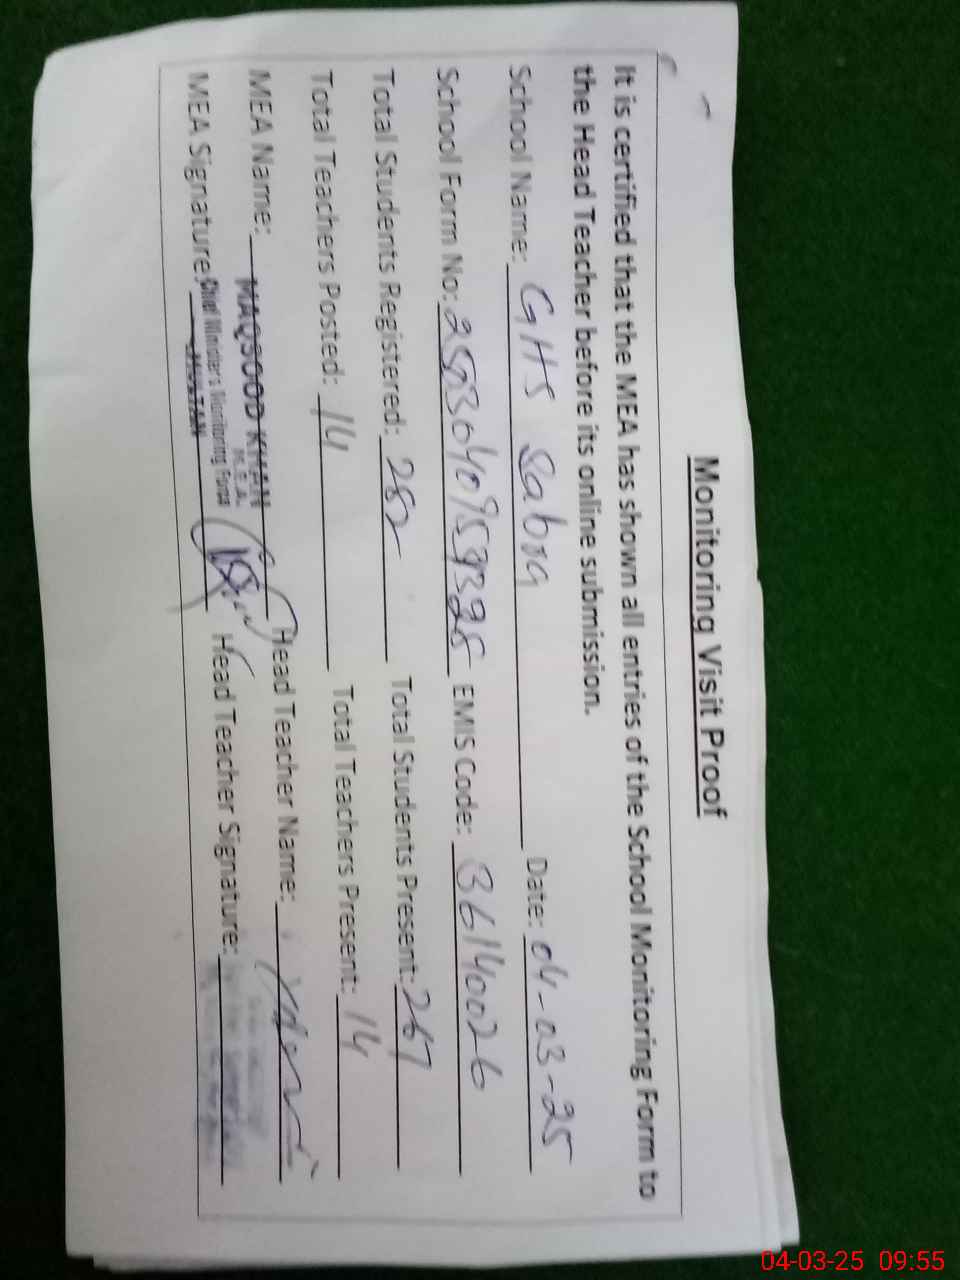 Monitoring Visit Proof
It is certified that the MEA has shown all entries of the School Monitoring Form to
the Head Teacher before its online submission.
School Name: GHS Date: 04-03-25
School Form No: EMIS Code: 36140026
Total Students Registered: 282 Total Students Present: 267
Total Teachers Posted: 14 Total Teachers Present: 14
MEA Name: MAQSOOD KHAN Head Teacher Name:
M.E.A.
MEA Signature: Chief Minister's Monitoring Force Head Teacher Signature:
MULTAN
04-03-25 09:55